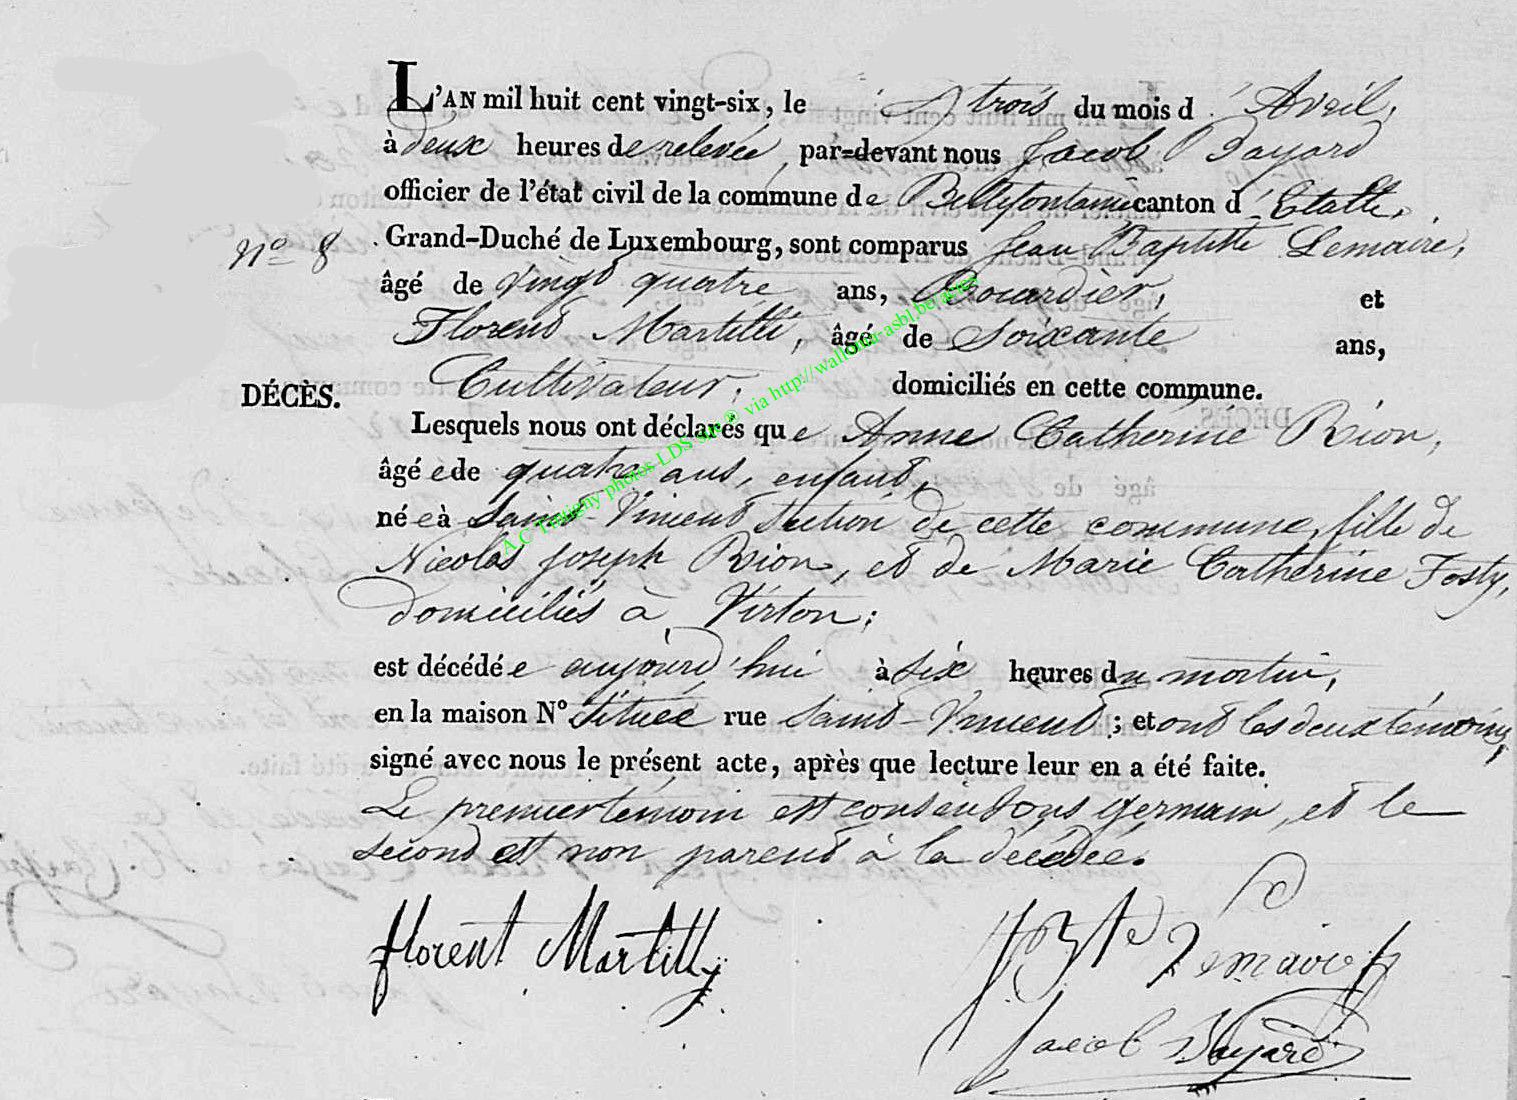 L'AN mil huit cent vingt-six, le trois du mois d'Avril,
à deux heures de relevée, par-devant nous Jacob Bayard
officier de l'état civil de la commune de Bellefontaine canton d'Etalle,
N° 8 Grand-Duché de Luxembourg, sont comparus Jean Baptiste Lemaire,
âgé de vingt quatre ans, et
Florent Martilli, âgé de Soixante ans,
DÉCÈS. Cultivateur, domiciliés en cette commune.
Lesquels nous ont déclarés que Anne Catherine Rion,
âgé e de quatre ans, enfant,
né e à Saint-Vincent Section de cette commune, fille de
Nicolas Joseph Rion, et de Marie Catherine Fosty,
domiciliés à Virton;
est décédée aujourd'hui à six heures du matin,
en la maison N° située rue Saint-Vincent; et ont les deux témoins,
signé avec nous le présent acte, après que lecture leur en a été faite.
Le premier témoin est cousin germain, et le
second est non parent à la décédée.
florent Martilly
JBte Lemaire
Jacob Bayard
A.C Tintigny photos LDS site® via http://wallonia-asbl.be/actes